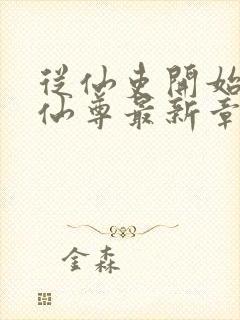 從仙吏開始
仙尊最新章
金森